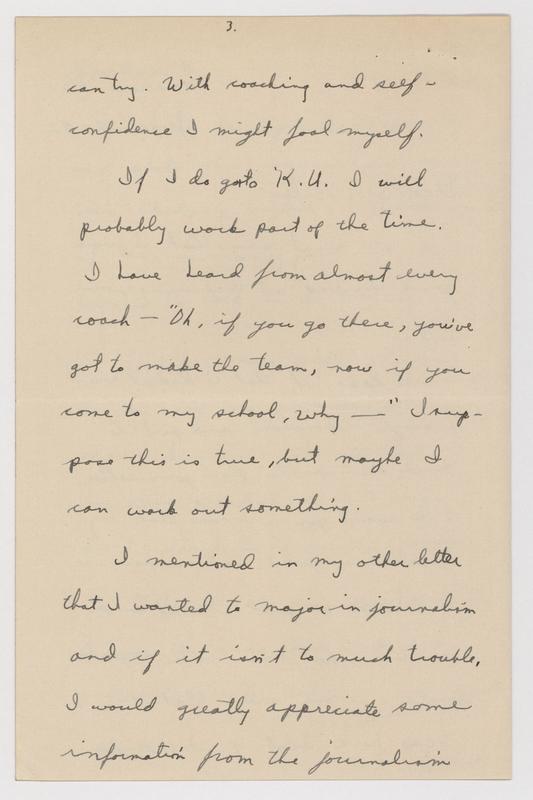 3.
can try. With coaching and self-
confidence I might fool myself.
If I do go to K.U. I will
probably work part of the time.
I have heard from almost every
coach — "Oh, if you go there, you've
got to make the team, now if you
come to my school, why —" I sup-
pose this is true, but maybe I
can work out something.
I mentioned in my other letter
that I wanted to major in journalism
and if it isn't to much trouble,
I would greatly appreciate some
information from the journalism